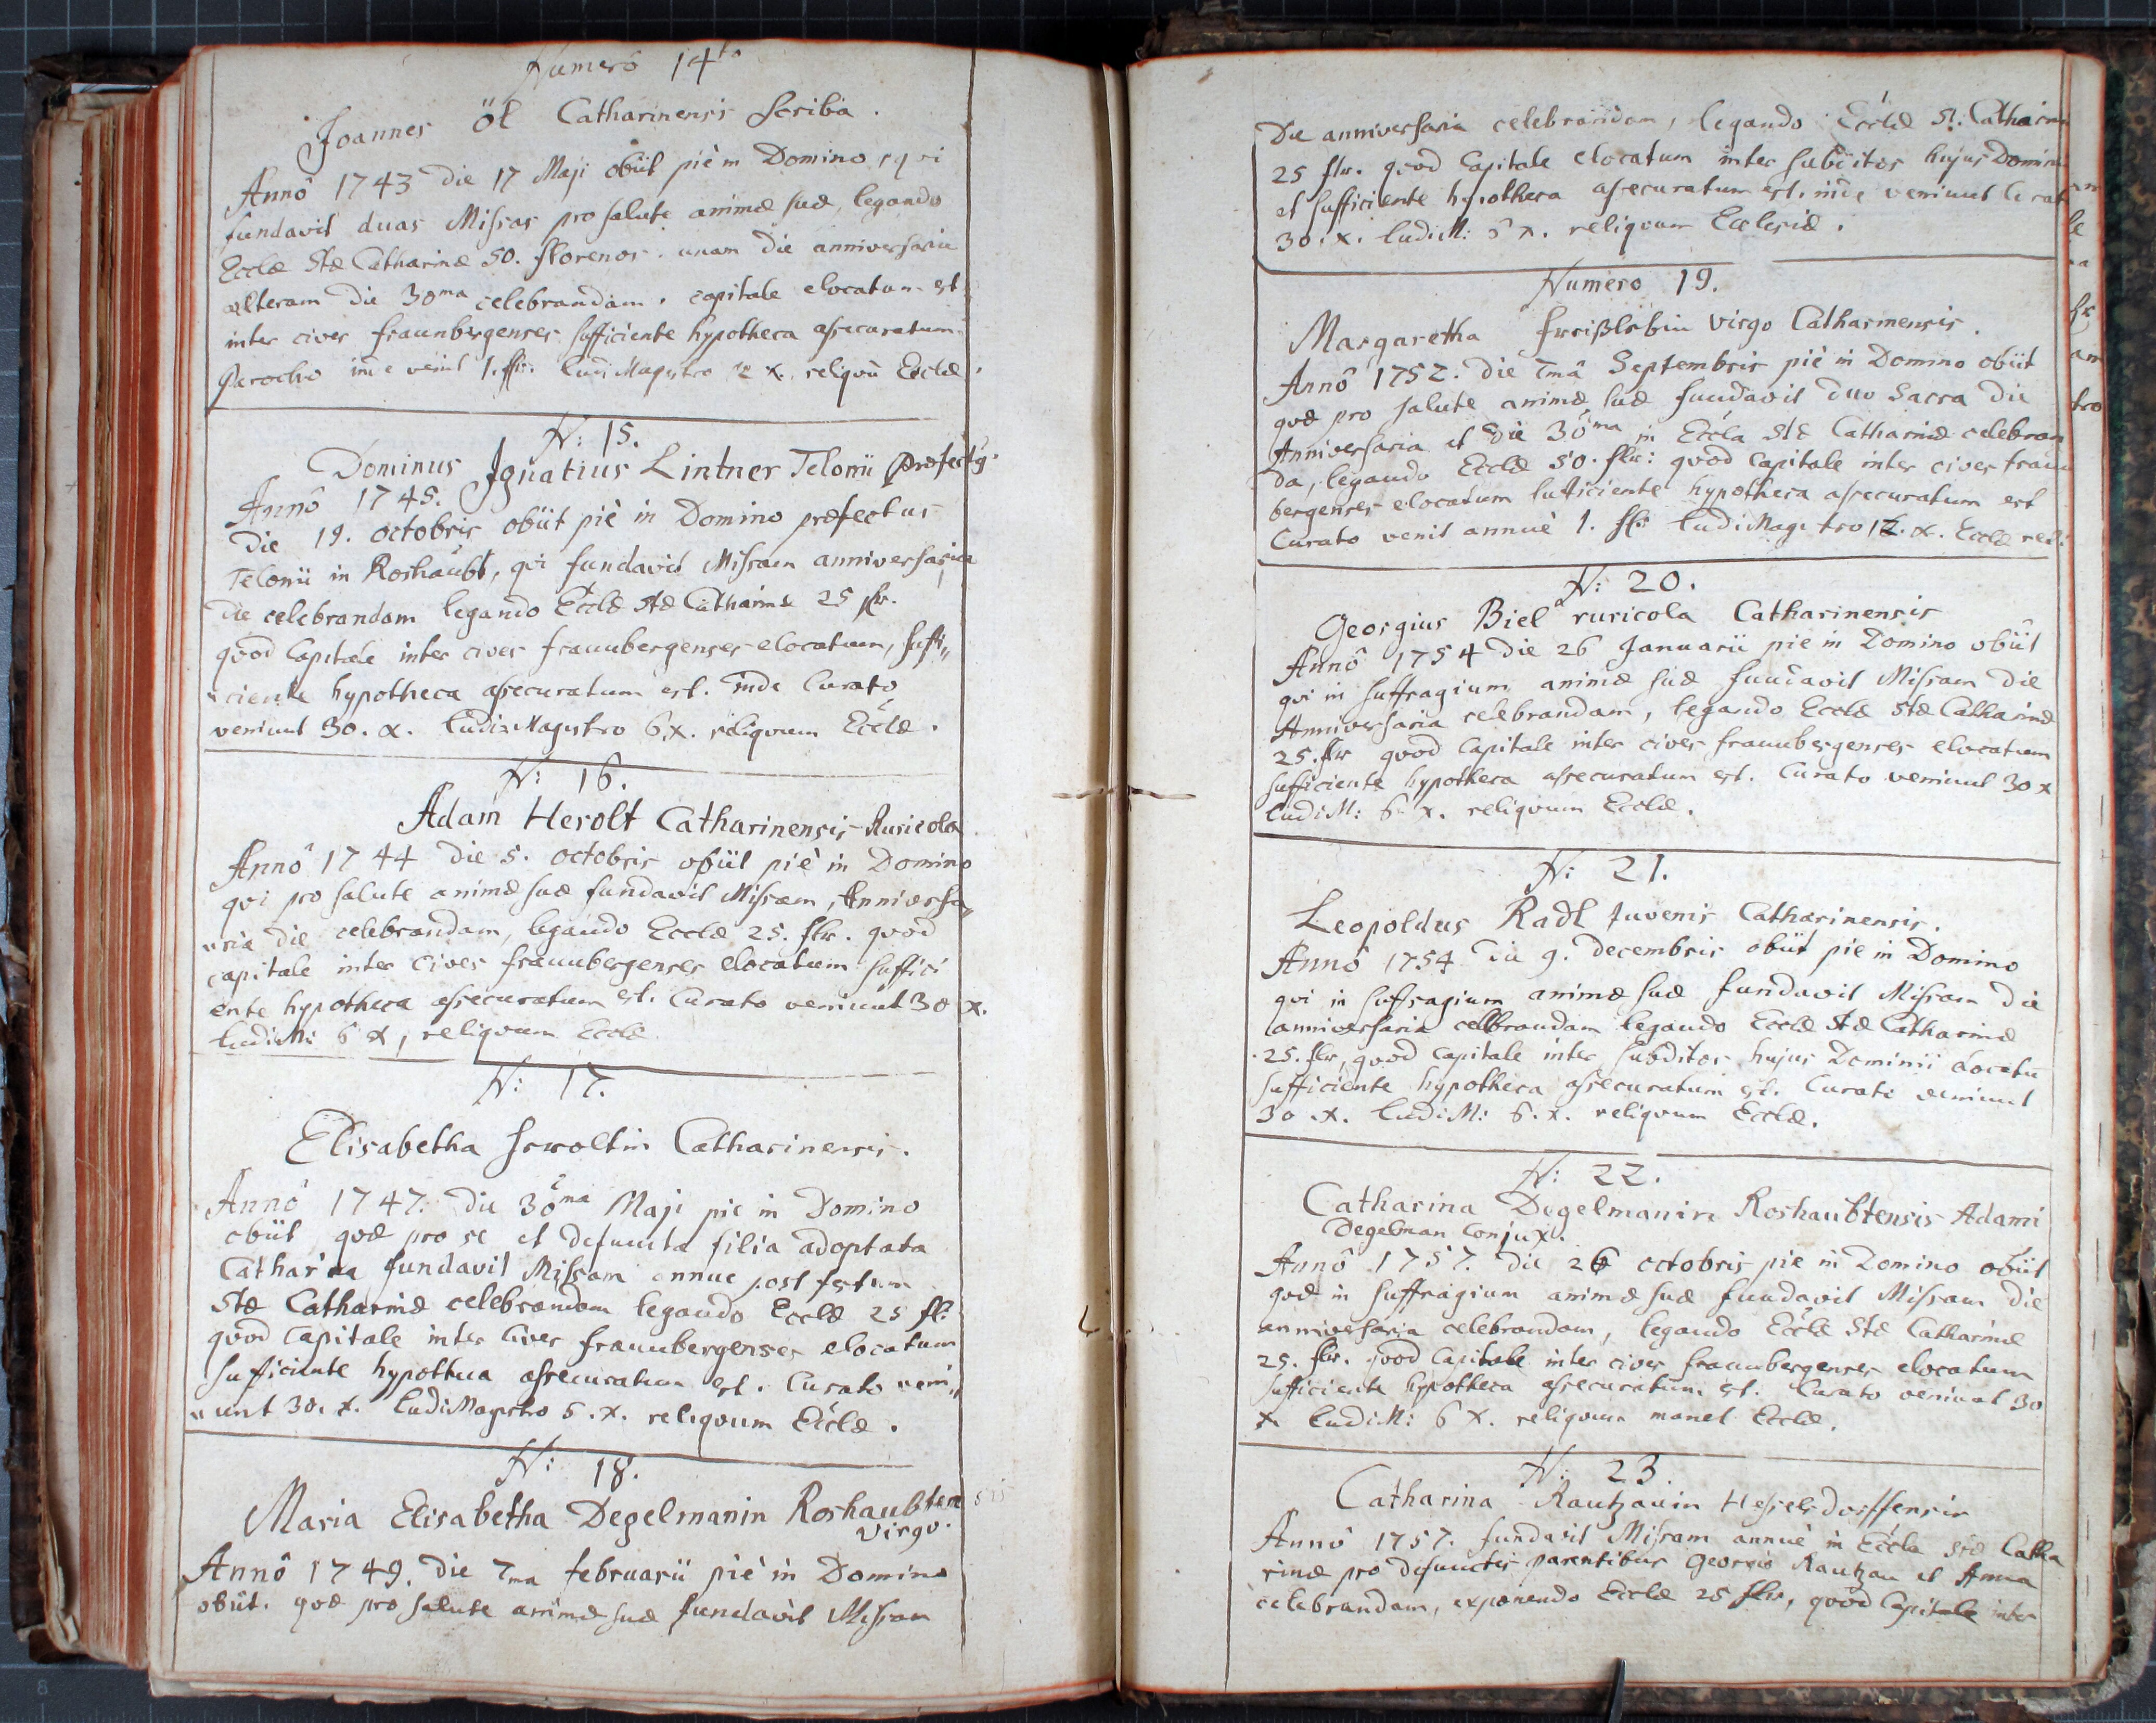 Numerô 14to
Joannes Öl Catharinensis Scriba.
Annô 1743 die 17 Maji obiit piè in Domino, qvi
fundavit duas Missas pro salute animæ suæ, legando
Ecclæ Stæ Catharinæ 50. florenos. unam die anniversaria
alteram die 30ma celebrandam. capitale elocatum est
inter cives fraunbergenses sufficiente hypotheca assecuratum.
Parocho inde venit 1. flr. Ludi Magistro 12 x. reliqvũ Ecclæ.
N: 15.
Dominus Ignatius Lintner Telonii Præfectg.
Annô 1745.
die 19. octobris obiit piè in Domino præfectus
Telonii in Roshaubt, qvi fundavit Missam anniversaria
die celebrandam legando Ecclæ Stæ Catharinæ 25 flr.
qvod Capitale inter cives fraunbergenses elocatum, suffi„
„ciente hypotheca assecuratum est. inde Curato
veniunt 30. x. Ludi Magistro 6. x. reliqvum Ecclæ.
N: 16.
Adam Herolt Catharinensis Ruricola
Annô 1744 die 5. octobris obiit piè in Domino
qvi pro salute animæ suæ fundavit Missam, Anniversa„
„ria die celebrandam, legando Ecclæ 25. flr. qvod
capitale inter cives fraunbergenses elocatum suffici
ente hypotheca assecuratum est. Curato veniunt 30 x.
Ludi M: 6 x, reliqvum Ecclæ
N: 17.
Elisabetha Heroltin Catharinensis.
Annô 1747. die 30ma Maji pie in Domino
obiit, qvæ pro se et defuncta filia adoptata
Catharina fundavit Missam annue post festum
Stæ Catharinæ celebrandam legando Ecclæ 25 fl:
qvod Capitale inter Cives fraunbergenses elocatum
sufficiente hypotheca assecuratum est. Curato veni„
„unt 30. x. Ludi Magistro 6. x. reliqvum Ecclæ.
N: 18.
Maria Elisabetha Degelmanin Roshaubtensis
Virgo.
Annô 1749. die 7ma februarii piè in Domino
obiit. qvæ pro salute animæ suæ fundavit Missam
Die anniversaria celebrandam, legando Ecclæ S: Catharin
25 flr. qvod Capitale elocatum inter subditos hujus Domin
et sufficiente hypotheca assecuratum est. inde veniunt Curat
30. x. Ludi M: 6 x. reliqvum Ecclesiæ.
Numero 19.
Margaretha virgo Catharinensis.
Annô 1752. die 7mâ Septembris piè in Domino obiit
qvæ pro salute animæ suæ fundavit duo Sacra die
Anniversaria et die 30ma in Eccla Stæ Catharinæ celebran
da, legando Ecclæ 50. flr: qvod Capitale inter cives fraun
bergenses elocatum sufficiente hypotheca assecuratum est
Curato venit annuè 1. flr Ludi Magistro 12. x. Ecclæ reli:
N: 20.
Georgius Biel ruricola Catharinensis
Annô 1754 die 26 Januarii pie in Domino obiit
qvi in suffragium animæ suæ fundavit Missam die
Anniversaria celebrandam, legando Ecclæ Stæ Catharinæ
25. flr qvod Capitale inter cives fraunbergenses elocatum
sufficiente hypotheca assecuratum est. Curato veniunt 30 x
Ludi M: 6 x. reliqvum Ecclæ.
N: 21.
Leopoldus Radl Juvenis Catharinensis.
Annô 1754 die 9. decembris obiit pie in Domino
qvi in suffragium animæ suæ fundavit Missam die
anniversaria celebrandam legando Ecclæ Stæ Catharinæ
25. flr, qvod Capitale inter subditos hujus Dominii elocatũ
sufficiente hypotheca assecuratum est. Curato veniunt
30 x. Ludi M: 6. x. reliqvum Ecclæ.
N: 22.
Catharina Degelmanin Roshaubtensis Adami
Degelman Conjux.
Annô 1757. die 26 octobris pie in Domino obiit
qvæ in suffragium animæ suæ fundavit Missam die
anniversaria celebrandam, legando Ecclæ Stæ Catharinæ
25. flr. qvod Capitale inter cives fraunbergenses elocatum
sufficiente hypotheca assecuratum est. Curato veniunt 30
x Ludi M: 6 x. reliqvum manet Ecclæ.
N: 23.
Catharina Rautzauin Hesselsdorffensis
Annô 1757. fundavit Missam annuè in Eccla Stæ Catha
rinæ pro defunctis parentibus Georgio Rautzau et Anna
celebrandam, exponendo Ecclæ 25 flr, qvod Capitale inter